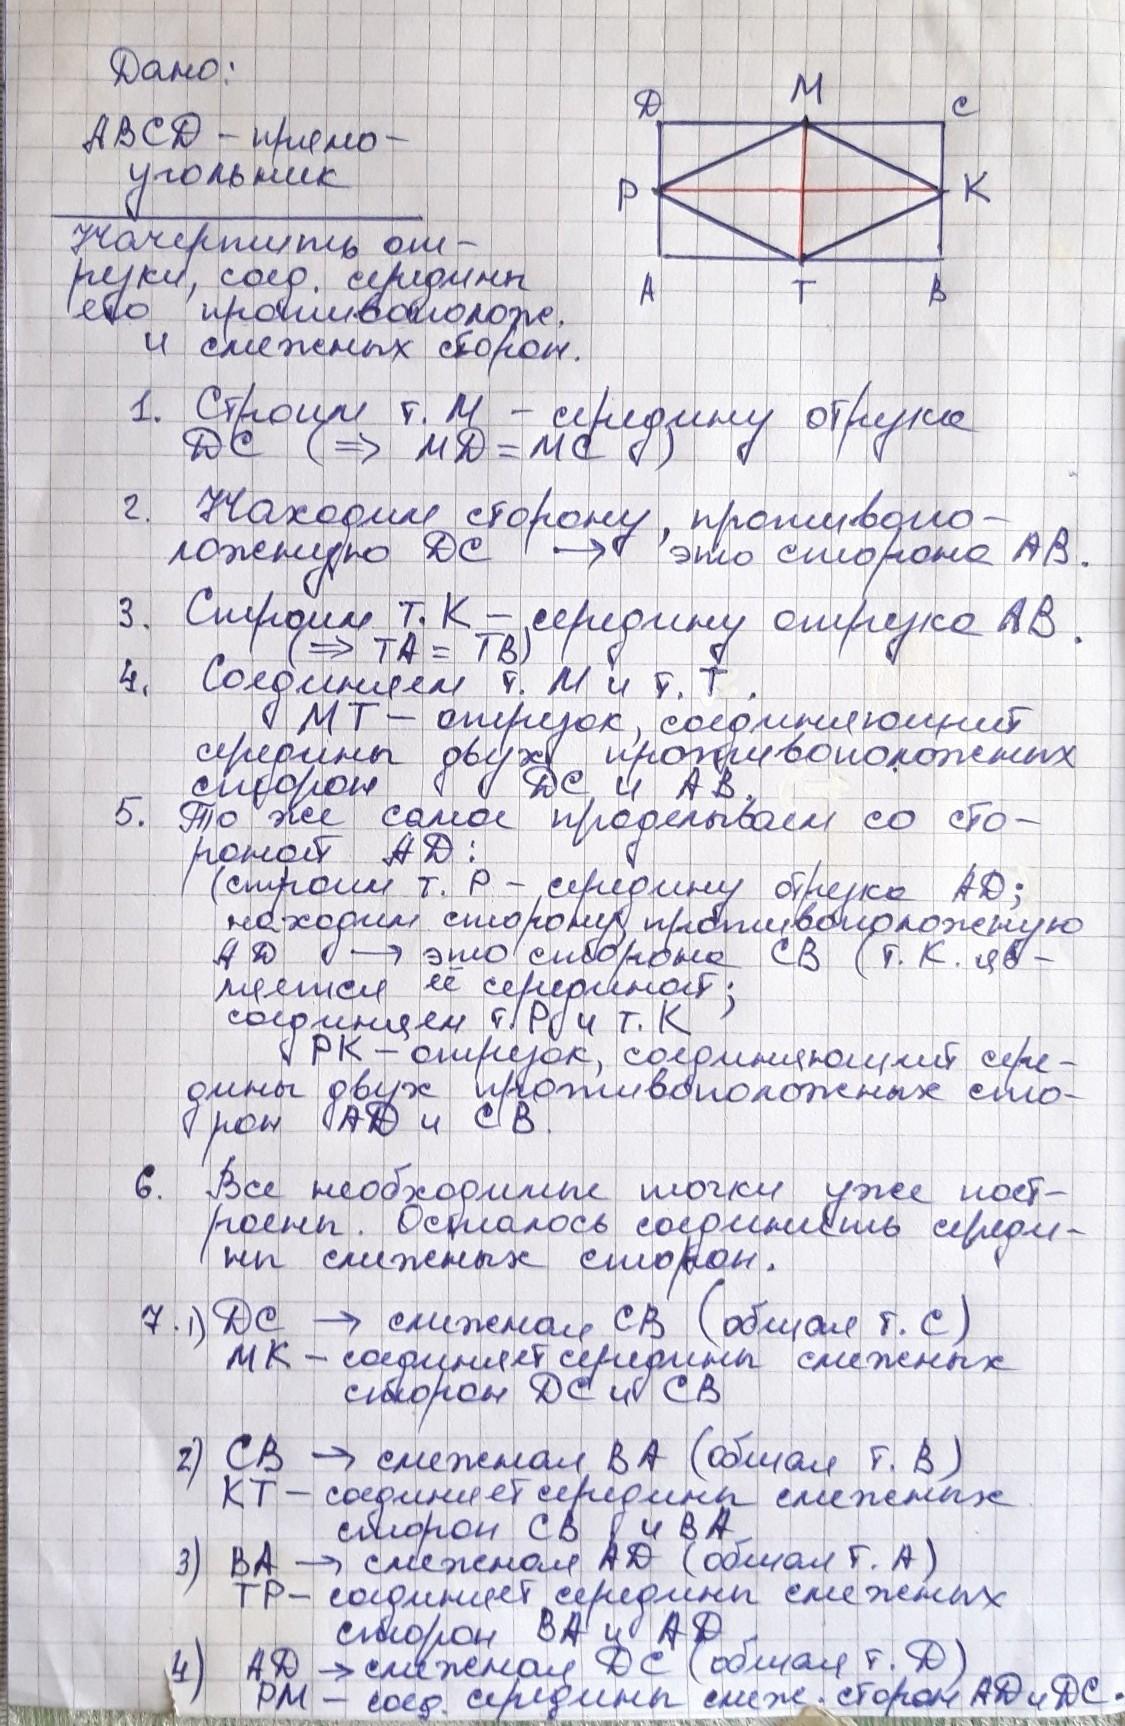 Дано:
ABCD – прямо-
угольник
Начертить от-
резки, соед. середины
его противополож.
и смежных сторон.
D M C
P K
A T B
1. Строим т. М – середину отрезка
DC (⇒ MD = MC)
2. Находим сторону, противопо-
ложную DC → это сторона AB.
3. Строим т. К – середину отрезка AB.
(⇒ TA = TB)
4. Соединяем т. М и т. Т.
МТ – отрезок, соединяющий
середины двух противоположных
сторон DC и AB.
5. То же самое проделываем со сто-
роной AD:
(строим т. Р – середину отрезка AD;
находим сторону, противоположную
AD → это сторона CB (т. К. яв-
ляется её серединой;
соединяем т. Р и т. К
РК – отрезок, соединяющий сере-
дины двух противоположных сто-
рон AD и CB.
6. Все необходимые точки уже пост-
роены. Осталось соединить середи-
ны смежных сторон.
7. 1) DC → смежная CB (общая т. С)
МК – соединяет середины смежных
сторон DC и CB
2) CB → смежная BA (общая т. В)
КТ – соединяет середины смежных
сторон CB и BA
3) BA → смежная AD (общая т. А)
ТР – соединяет середины смежных
сторон BA и AD
4) AD → смежная DC (общая т. D)
РМ – соед. середины смеж. сторон AD и DC.